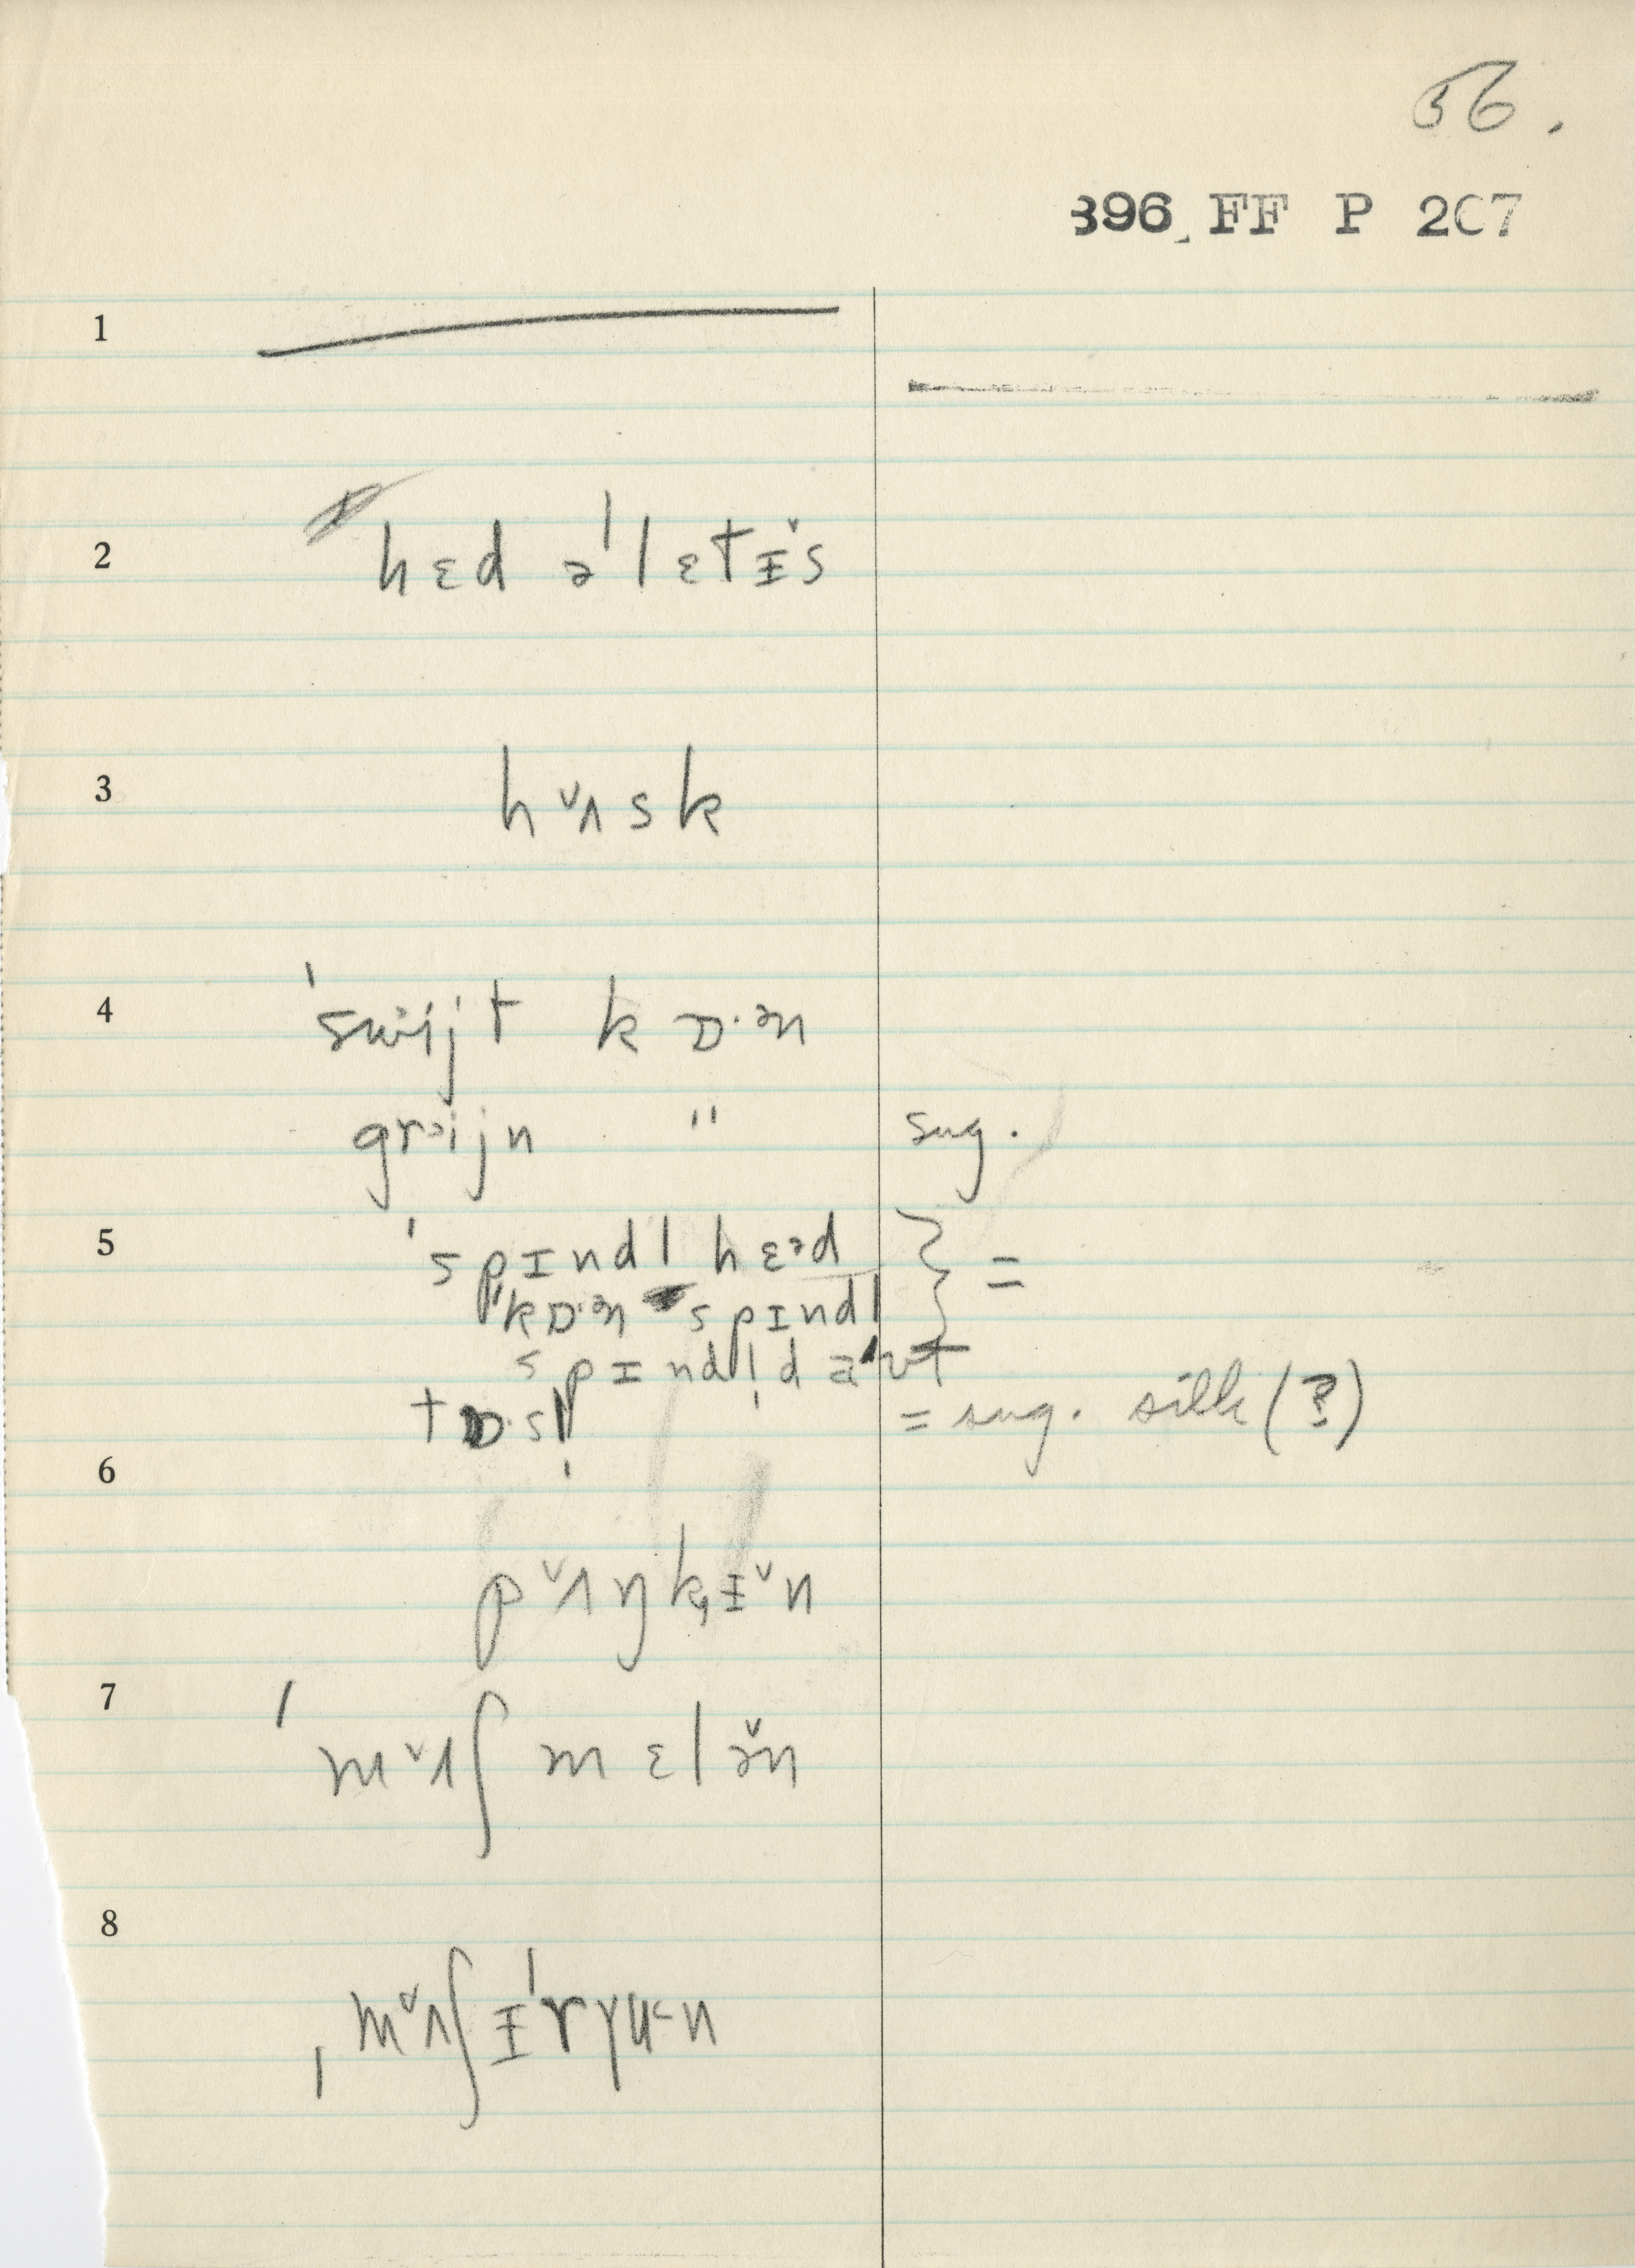 56.
396 FF P 207
1
2
hɛd əˈlɛtɪ̵̌s
3
hʌ̌sk
4
ˈswəijt kɒ·ən
grəijn " sug.
5
ˈspɪndl hɛəd } =
ˈkɒ·ən spɪndl
spɪndl̩d aʊt
tɒ·sl̩ = sug. silk (?)
6
pʌ̌ŋk,ɪ̵̌n
7
ˈmʌ̌ʃ mɛlə̌n
8
ˌmʌ̌ʃɪ̵ˈryu<n